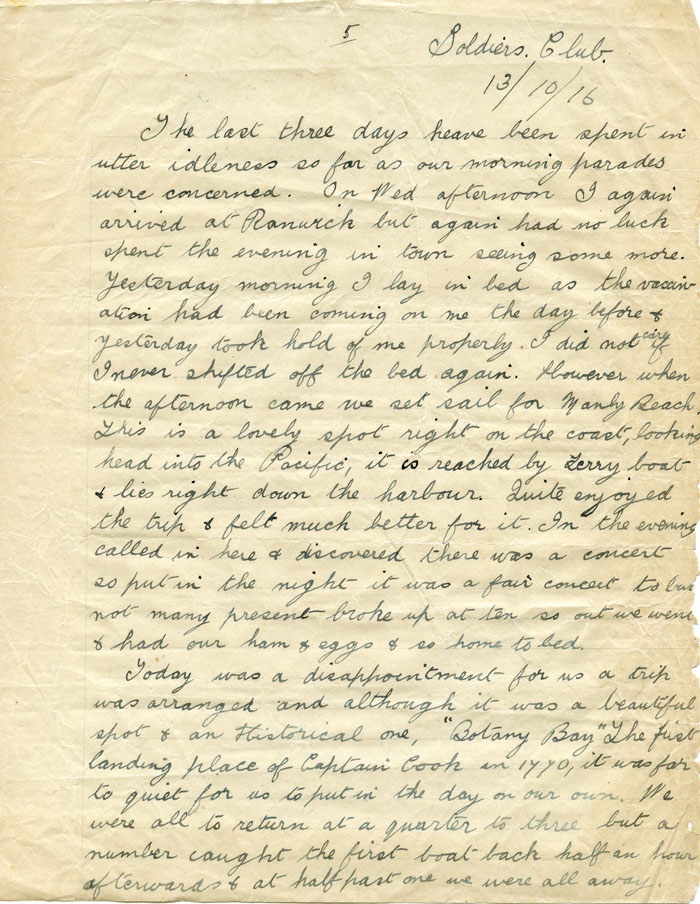 5
Soldiers. Club.
13/10/16
The last three days heave been spent in
utter idleness so far as our morning parades
were concerned. On Wed afternoon I again
arrived at Ranwick but again had no luck
spent the evening in town seeing some more.
Yesterday morning I lay in bed as the vaccin
ation had been coming on me the day before &
yesterday took hold of me properly. I did not care if
I never shifted off the bed again. However when
the afternoon came we set sail for Manly Beach
This is a lovely spot right on the coast, looking
head into the Pacific, it is reached by ferry boat
& lies right down the harbour. Quite enjoyed
the trip & felt much better for it. In the evening
called in here & discovered there was a concert
so put in the night it was a fair concert to but
not many present broke up at ten so out we went
& had our ham & eggs & so home to bed.
Today was a disappointment for us a trip
was arranged and although it was a beautiful
spot & an Historical one, "Botany Bay" The first
landing place of Captain Cook in 1770, it was far
to quiet for us to put in the day on our own. We
were all to return at a quarter to three but a
number caught the first boat back half an hour
afterwards & at half past one we were all away.